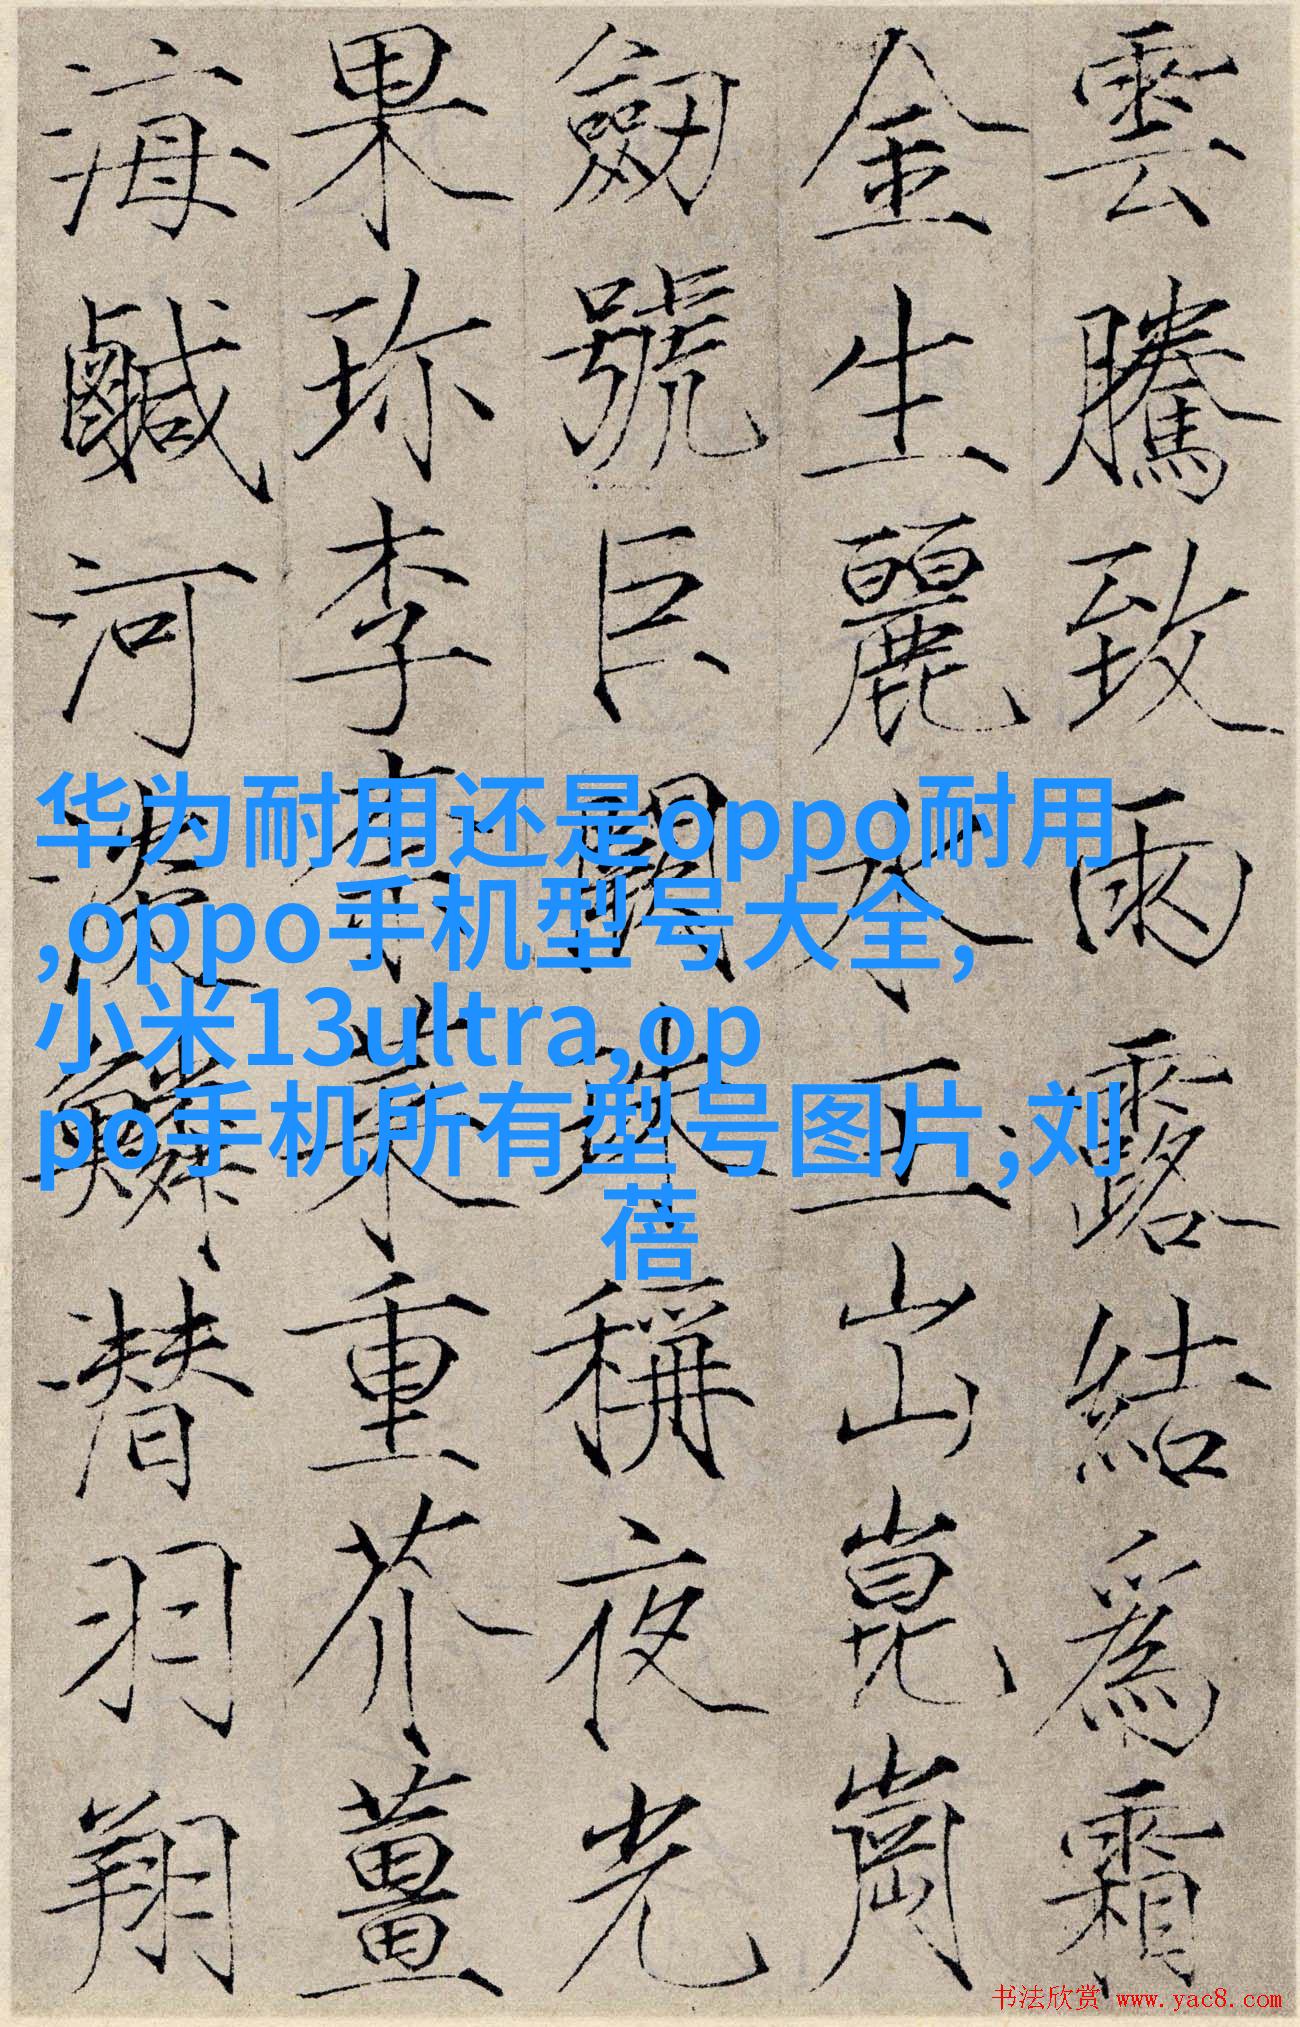 雲騰致雨露結爲霜
金生麗水玉出崑崗
劒號巨闕珠稱夜光
果珎李柰菜重芥薑
海鹹河淡鱗潛羽翔
华为耐用还是oppo耐用
,oppo手机型号大全,
小米13ultra,op
po手机所有型号图片;刘
蓓
书法欣赏 www.yac8.com